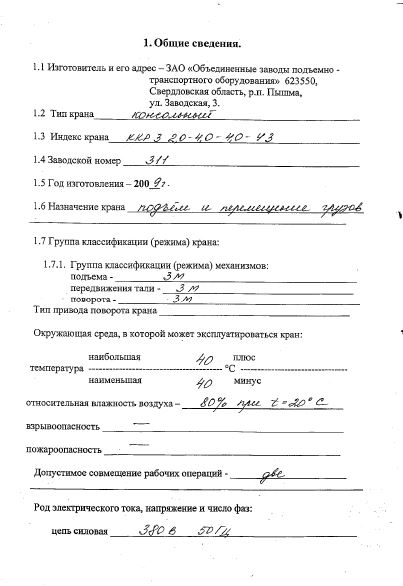 1. Общие сведения.
1.1 Изготовитель и его адрес – ЗАО «Объединенные заводы подъемно -
транспортного оборудования» 623550,
Свердловская область, р.п. Пышма,
ул. Заводская, 3.
1.2 Тип крана консольный
1.3 Индекс крана ККР 3 2,0-4,0-4,0-У3
1.4 Заводской номер 311
1.5 Год изготовления – 2009г.
1.6 Назначение крана подъём и перемещение грузов
1.7 Группа классификации (режима) крана:
1.7.1. Группа классификации (режима) механизмов:
подъема - 3м
передвижения тали - 3м
поворота - 3м
Тип привода поворота крана
Окружающая среда, в которой может эксплуатироваться кран:
наибольшая 40 плюс
температура °С
наименьшая 40 минус
относительная влажность воздуха – 80% при t=20°С
взрывоопасность —
пожароопасность —
Допустимое совмещение рабочих операций - две
Род электрического тока, напряжение и число фаз:
цепь силовая 380 в 50 Гц